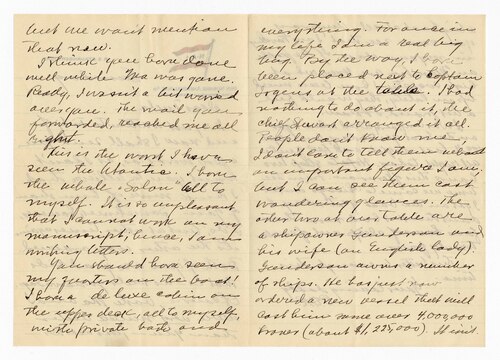 but we wont mention
that now.
I think you have done
well while Ma was gone.
Really, I wasnt a bit worried
over you. The mail you
forwarded, reached me all
right.
This is the worst I have
seen the Atlantic. I have
the whole "Salon" all to
myself. It is so unpleasant
that I can not work on my
manuscript, hence, I am
writing letters.
You should have seen
my quarters on the boat!
I have a de luxe cabin on
the upper deck, all to myself,
with private bath and
everything. For once in
my life I am a real big
bug. By the way, I have
been placed next to Captain
Irgens at the table. I had
nothing to do about it, the
chief Stuart arranged it all.
People don't know me,
I don't care to tell them what
an important figure I am,
but I can see them cast
wandering glances. The
other two at our table are
a shipowner Gunderson and
his wife (an English lady).
Gunderson owns a number
of ships. He has just now
ordered a new vessel that will
cost him some over 4,000,000
kroner (about $1,225,000). It isnt